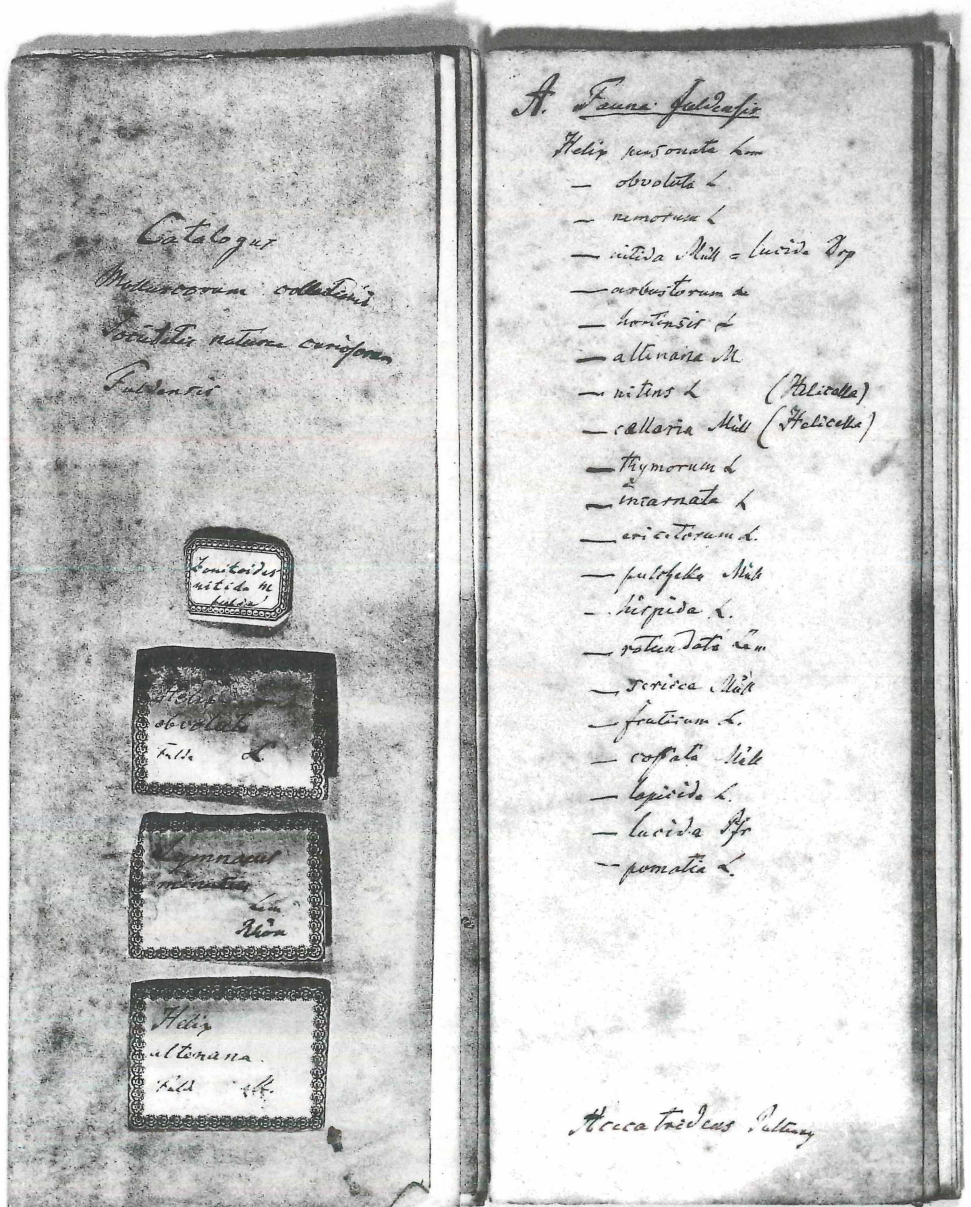 Catalogus
Molluscorum collectionis
Societatis naturae curiosorum
Fuldensis
Zonitoides
nitida M
Fulda
Helix
obvoluta
Fulda L
Lymnaeus
minutus
Lam
Rhön
Helix
altenana
Fulda M.
A. Fauna fuldensis
Helix personata Lam
— obvoluta L
— nemorum L
— nitida Müll = lucida Drp
— arbustorum
— hortensis L
— altenana M
— nitens L (Helicella)
— cellaria Müll (Helicella)
— thymorum L
— incarnata L
— ericetorum L.
— pulchella Müll
— hispida L.
— rotundata Lam
— sericea Müll
— fruticum L.
— costata Müll
— lapicida L.
— lucida Pfr
— pomatia L.
Aceca tridens Pulteney